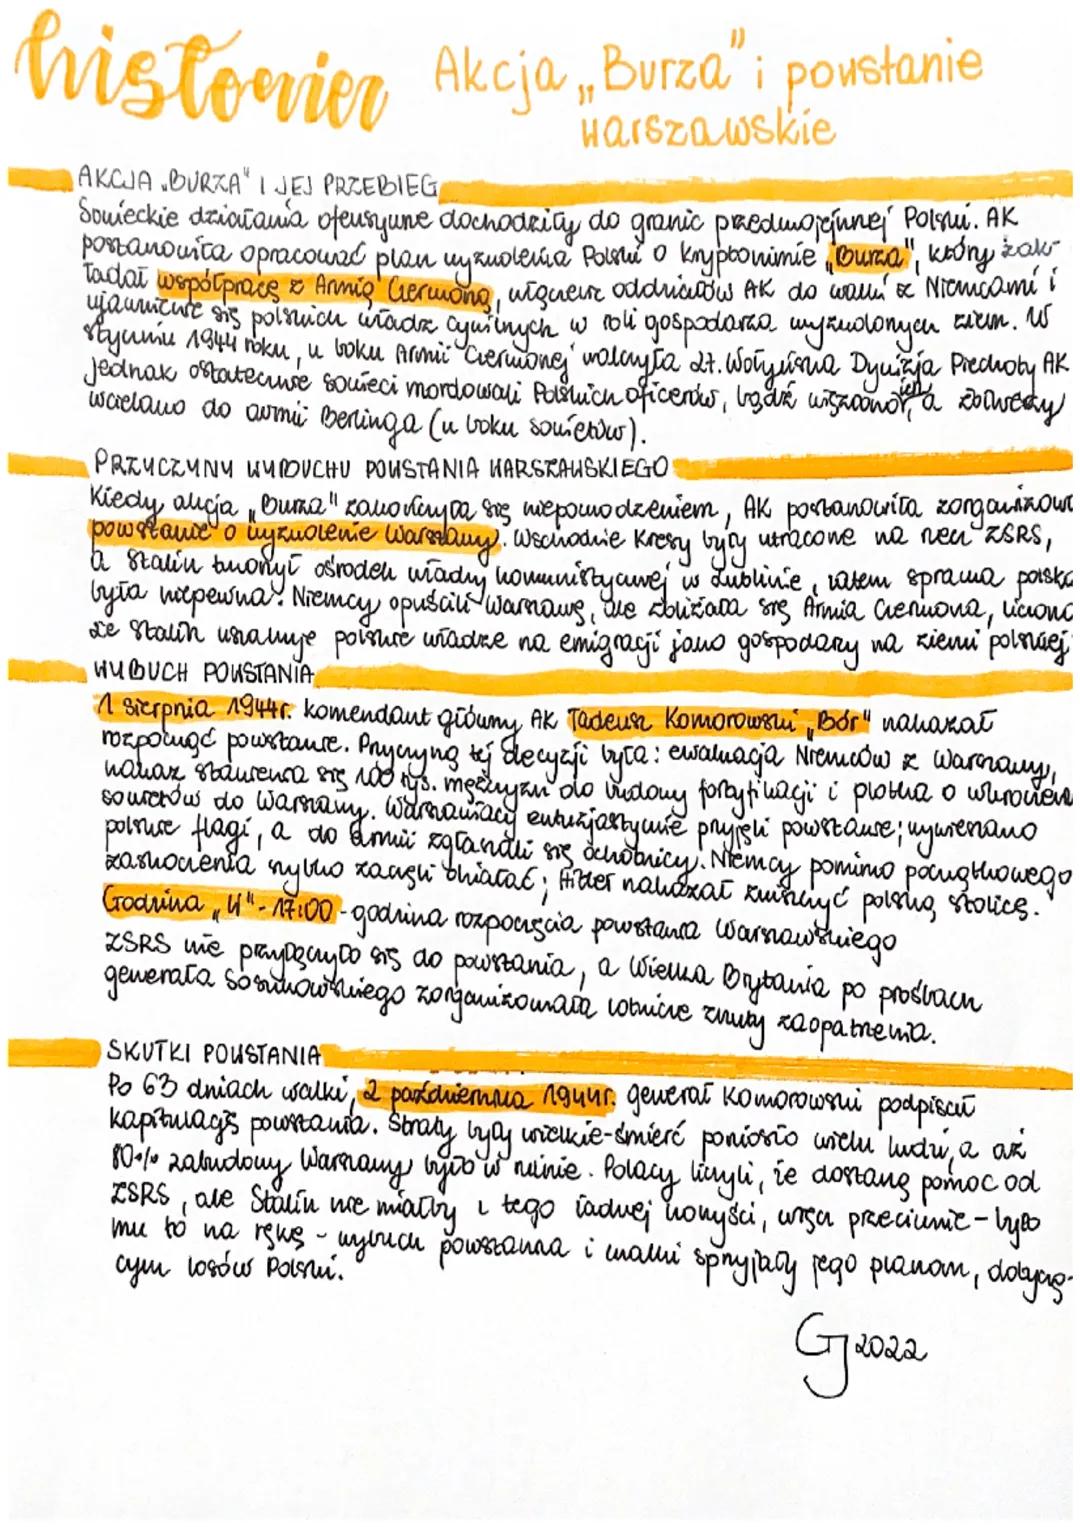 historia
Akcja „Burza" i powstanie
warszawskie
AKCJA „BURZA" I JEJ PRZEBIEG
Sowieckie działania ofensywne dochodziły do granic przedwojennej Polski. AK
postanowiła opracować plan wyzwolenia Polski o kryptonimie „Burza", który zakł-
ładał współpracę z Armią Czerwoną, włączenie oddziałów AK do walki z Niemcami i
ujawnienie się polskich władz cywilnych w roli gospodarza wyzwolonych ziem. W
styczniu 1944 roku, u boku Armii Czerwonej walczyła 27. Wołyńska Dywizja Piechoty AK
Jednak ostatecznie sowieci mordowali Polskich oficerów, bądź więziono ich, a żołnierzy
wcielano do armii Berlinga (u boku sowietów).
PRZYCZYNY WYBUCHU POWSTANIA WARSZAWSKIEGO
Kiedy akcja „Burza" zakończyła się niepowodzeniem, AK postanowiła zorganizować
powstanie o wyzwolenie Warszawy. Wschodnie Kresy były utracone na rzecz ZSRS,
a Stalin tworzył ośrodek władzy komunistycznej w Lublinie, zatem sprawa polska
była niepewna. Niemcy opuścili Warszawę, ale zbliżała się Armia Czerwona, liczono
że Stalin uszanuje polskie władze na emigracji jako gospodarzy na ziemi polskiej
WYBUCH POWSTANIA
1 sierpnia 1944r. komendant główny AK Tadeusz Komorowski „Bór" nakazał
rozpocząć powstanie. Przyczyną tej decyzji była: ewakuacja Niemców z Warszawy,
nakaz stawienia się 100 tys. mężczyzn do budowy fortyfikacji i plotka o wkroczeniu
sowietów do Warszawy. Warszawiacy entuzjastycznie przyjęli powstanie; wywieszano
polskie flagi, a do armii zgłaszali się ochotnicy. Niemcy pomimo początkowego
zaskoczenia szybko zaczęli działać; Hitler nakazał zniszczyć polską stolicę.
Godzina „W" - 17:00 - godzina rozpoczęcia powstania Warszawskiego
ZSRS nie przyłączyło się do powstania, a Wielka Brytania po prośbach
generała Sosnkowskiego zorganizowała lotnicze zrzuty zaopatrzenia.
SKUTKI POWSTANIA
Po 63 dniach walki, 2 października 1944r. generał Komorowski podpisał
kapitulację powstania. Straty były wielkie - śmierć poniosło wielu ludzi, a aż
80% zabudowy Warszawy było w ruinie. Polacy liczyli, że dostaną pomoc od
ZSRS, ale Stalin nie miałby z tego żadnej korzyści, wręcz przeciwnie - było
mu to na rękę - wybuch powstania i walki sprzyjały jego planom, dotyczą-
cym losów Polski.
GJ 2022